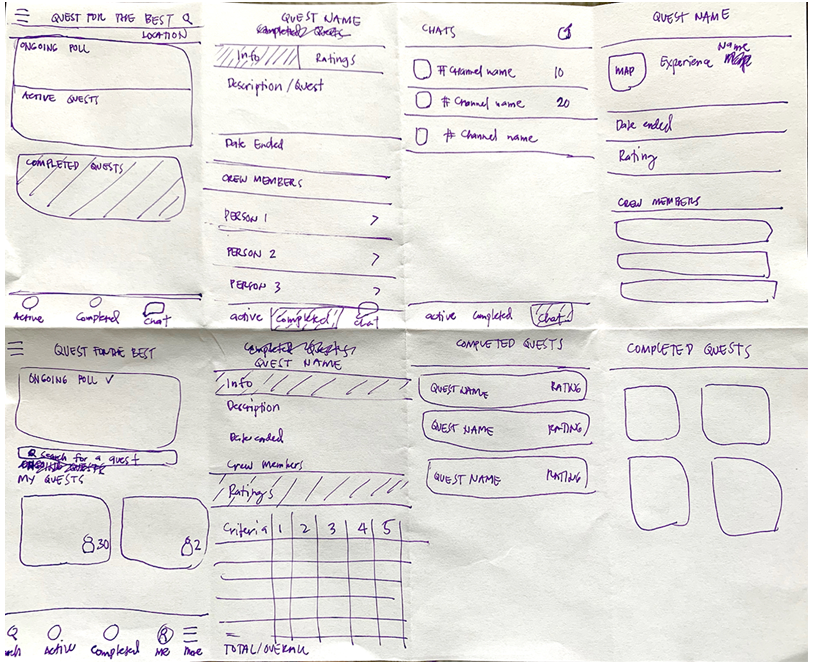 QUEST FOR THE BEST
LOCATION
ONGOING POLL
ACTIVE QUESTS
COMPLETED QUESTS
Active Completed Chat
QUEST NAME
Completed Quests
Info Ratings
Description/Quest
Date Ended
CREW MEMBERS
PERSON 1 >
PERSON 2 >
PERSON 3 >
active Completed Chat
CHATS
# Channel name 10
# Channel name 20
# Channel name
active Completed Chat
QUEST NAME
MAP Experience Name
Date ended
Rating
CREW MEMBERS
QUEST FOR THE BEST
ONGOING POLL ✓
Search for a quest
MY QUESTS
30
2
Active Completed Me More
Completed Quests
QUEST NAME
Info
Description
Date ended
Crew Members
Ratings
Criteria 1 2 3 4 5
TOTAL/OVERALL
COMPLETED QUESTS
QUEST NAME RATING
QUEST NAME RATING
QUEST NAME RATING
COMPLETED QUESTS